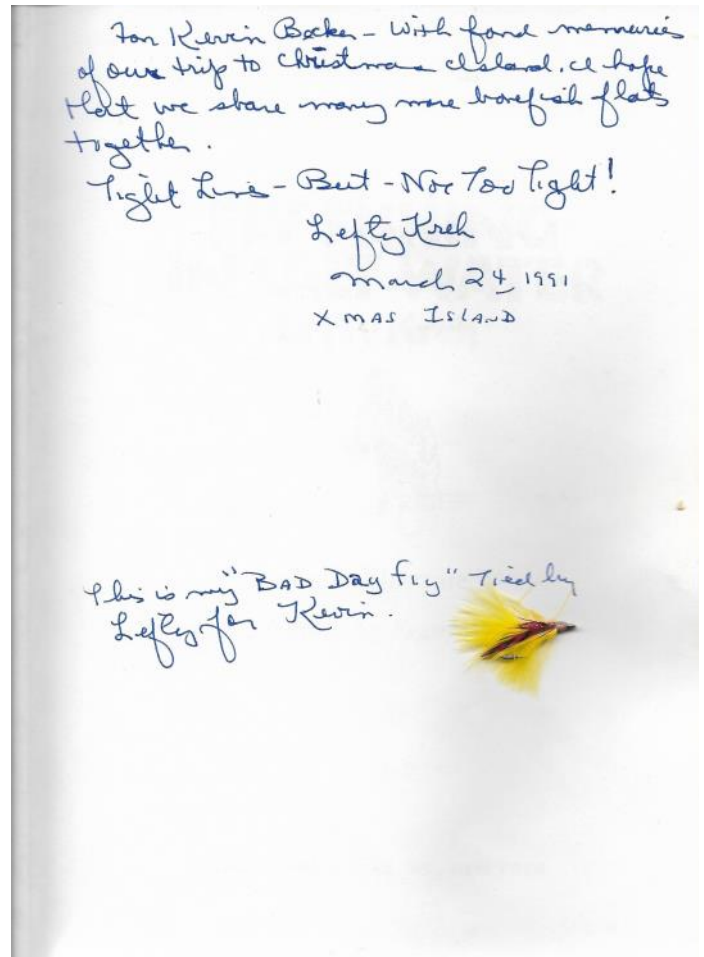 For Kevin Becker - With fond memories
of our trip to Christmas Island. I hope
that we share many more bonefish flats
together.
Tight Lines - But - Not Too Tight!
Lefty Kreh
March 24, 1991
XMAS ISLAND
This is my "BAD Day fly" Tied by
Lefty for Kevin.